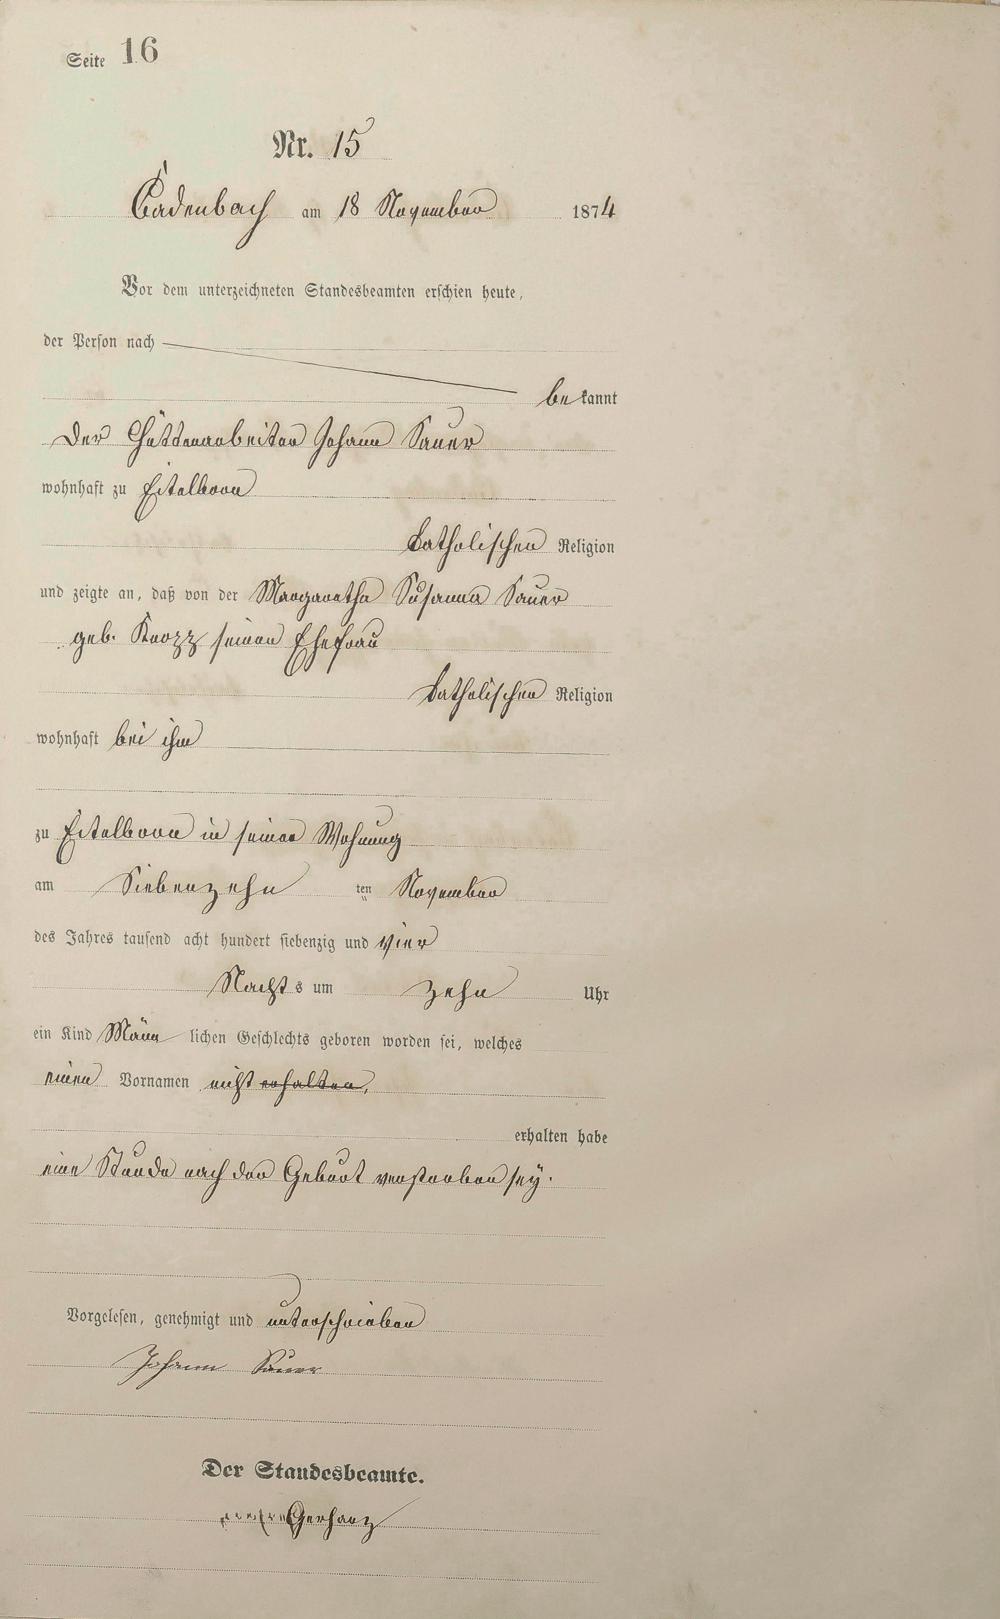 Seite 16
Nr. 15
Cadenbach am 18 November 1874
Vor dem unterzeichneten Standesbeamten erschien heute,
der Person nach
bekannt
Der Hüttenarbeiter Johann Sauer
wohnhaft zu Eitelborn
katholischen Religion
und zeigte an, daß von der Margaretha Susanna Sauer
geb. Knopp seiner Ehefrau
katholischen Religion
wohnhaft bei ihm
zu Eitelborn in seiner Wohnung
am Siebenzehn ten November
des Jahres tausend acht hundert siebenzig und vier
Nachts um zehn Uhr
ein Kind Männlichen Geschlechts geboren worden sei, welches
einen Vornamen nicht erhalten,
erhalten habe
eine Stunde nach der Geburt verstorben sey.
Vorgelesen, genehmigt und unterschrieben
Johann Sauer
Der Standesbeamte.
Gerharz